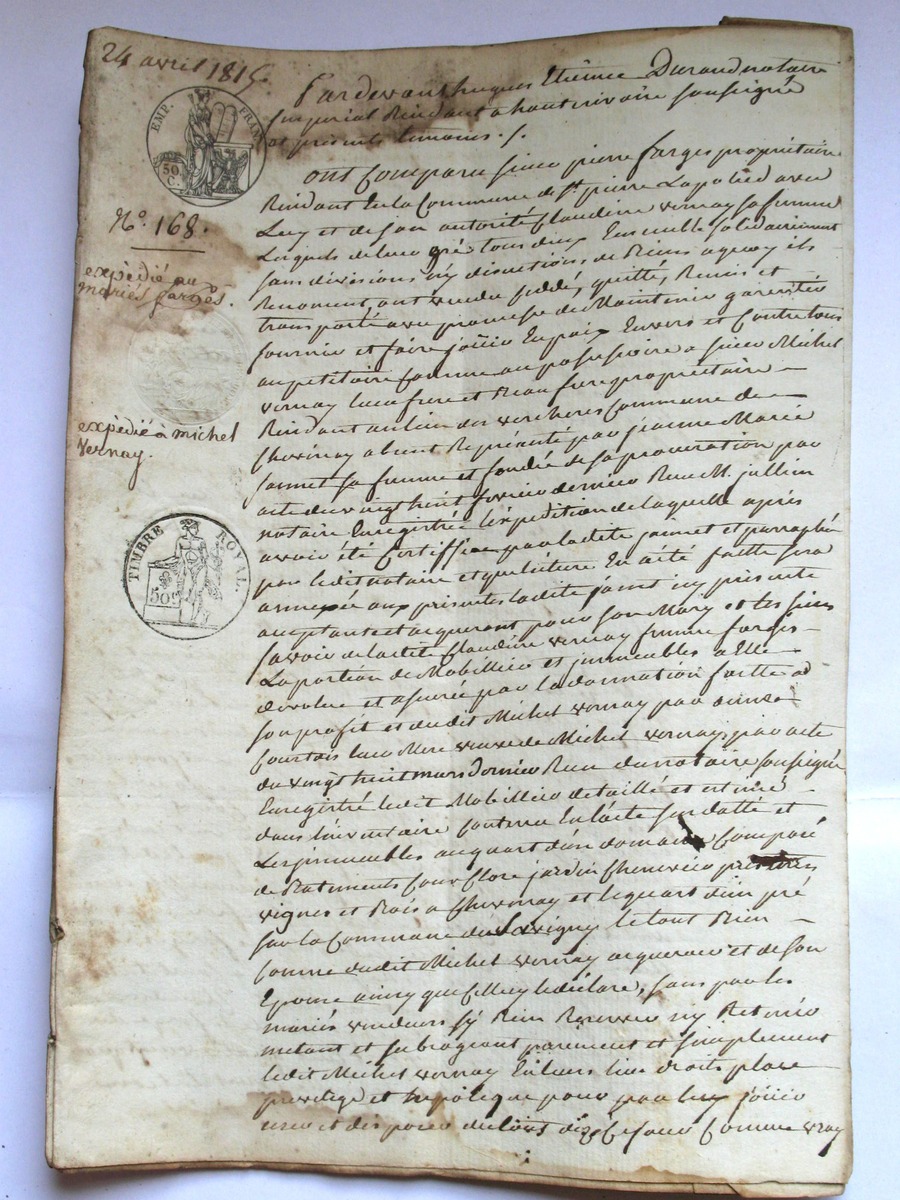 24 avril 1815
EMP. FRAN
50 C.
N° 168.
expédié au
mariés farges.
expédié à michel
Vernay.
TIMBRE ROYAL.
50
Pardevant hugues Etienne Durand notaire
Imperial Residant a hauterivoire soussigné
et presents temoins ./.
ont Comparu sieur pierre farges propriétaire
Residant En la Commune de St pierre Lapalud avec
Luy et de son autorité Claudine vernay sa femme
Lesquels de leur gré tous deux Ensemble solidairement
sans divisions ny discutions de Biens a quoy ils
Renoncent, ont vendu ceddé, quitte, Remis et
transporté avec promesse de Maintenir garentir
fournir et faire jouir En paix Envers et Contre tous
au petitoire Comme au possessoire a sieur Michel
vernay leur frere et Beau frere propriétaire
Residant au lieu des vercheres Commune de
Chevinay absent Représenté par jeanne Marie
jamet sa femme et fondée de sa procuration par
acte du vingt huit fevrier dernier Reçu M. jullien
notaire Enregistrée l'expédition de laquelle après
avoir été Certiffiée par ladite jamet et parraphée
par ledit notaire
annexée aux présentes ladite jamet icy présente
acceptante et acquerant pour son Mary et les siens
savoir de ladite Claudine vernay femme farges
La portion de Mobillier et immeubles a Elle
devolue et assurée par la donnation faitte a
son profit et dudit Michel vernay par
leur Mere veuve de Michel vernay, par acte
du vingt huit mars dernier Reçu du notaire soussigné
Enregistré ledit Mobillier detaillé et estimé
dans l'inventaire Contenu En l'acte susdatté et
Les immeubles au quart d'un domaine Composé
de Batiments Cour jardin Chenevier
vignes et Bois a Chevinay et le quart d'un pré
sur la Commune de Savigny le tout Bien
connu dudit Michel vernay acquereur et de son
Epouse ainsy que Elle le déclare, sans par les
mariés vendeurs s'y Rien Reserver ny Retenir
mettant et subrogeant purement et simplement
ledit Michel vernay En leurs lieu droits place
privilege et hypoteque pour par luy jouir
user et disposer de tout Ce jour Comme vray